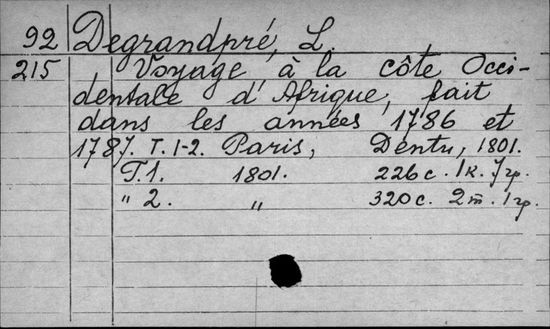 92 Degrandpré, L.
215 Voyage à la côte Occi-
dentale d'Afrique, fait
dans les années 1786 et
1787. T. 1-2. Paris, Dentu, 1801.
T. 1. 1801. 226 c. 1 к. 7 гр.
" 2. " 320 c. 2 т. 1 гр.